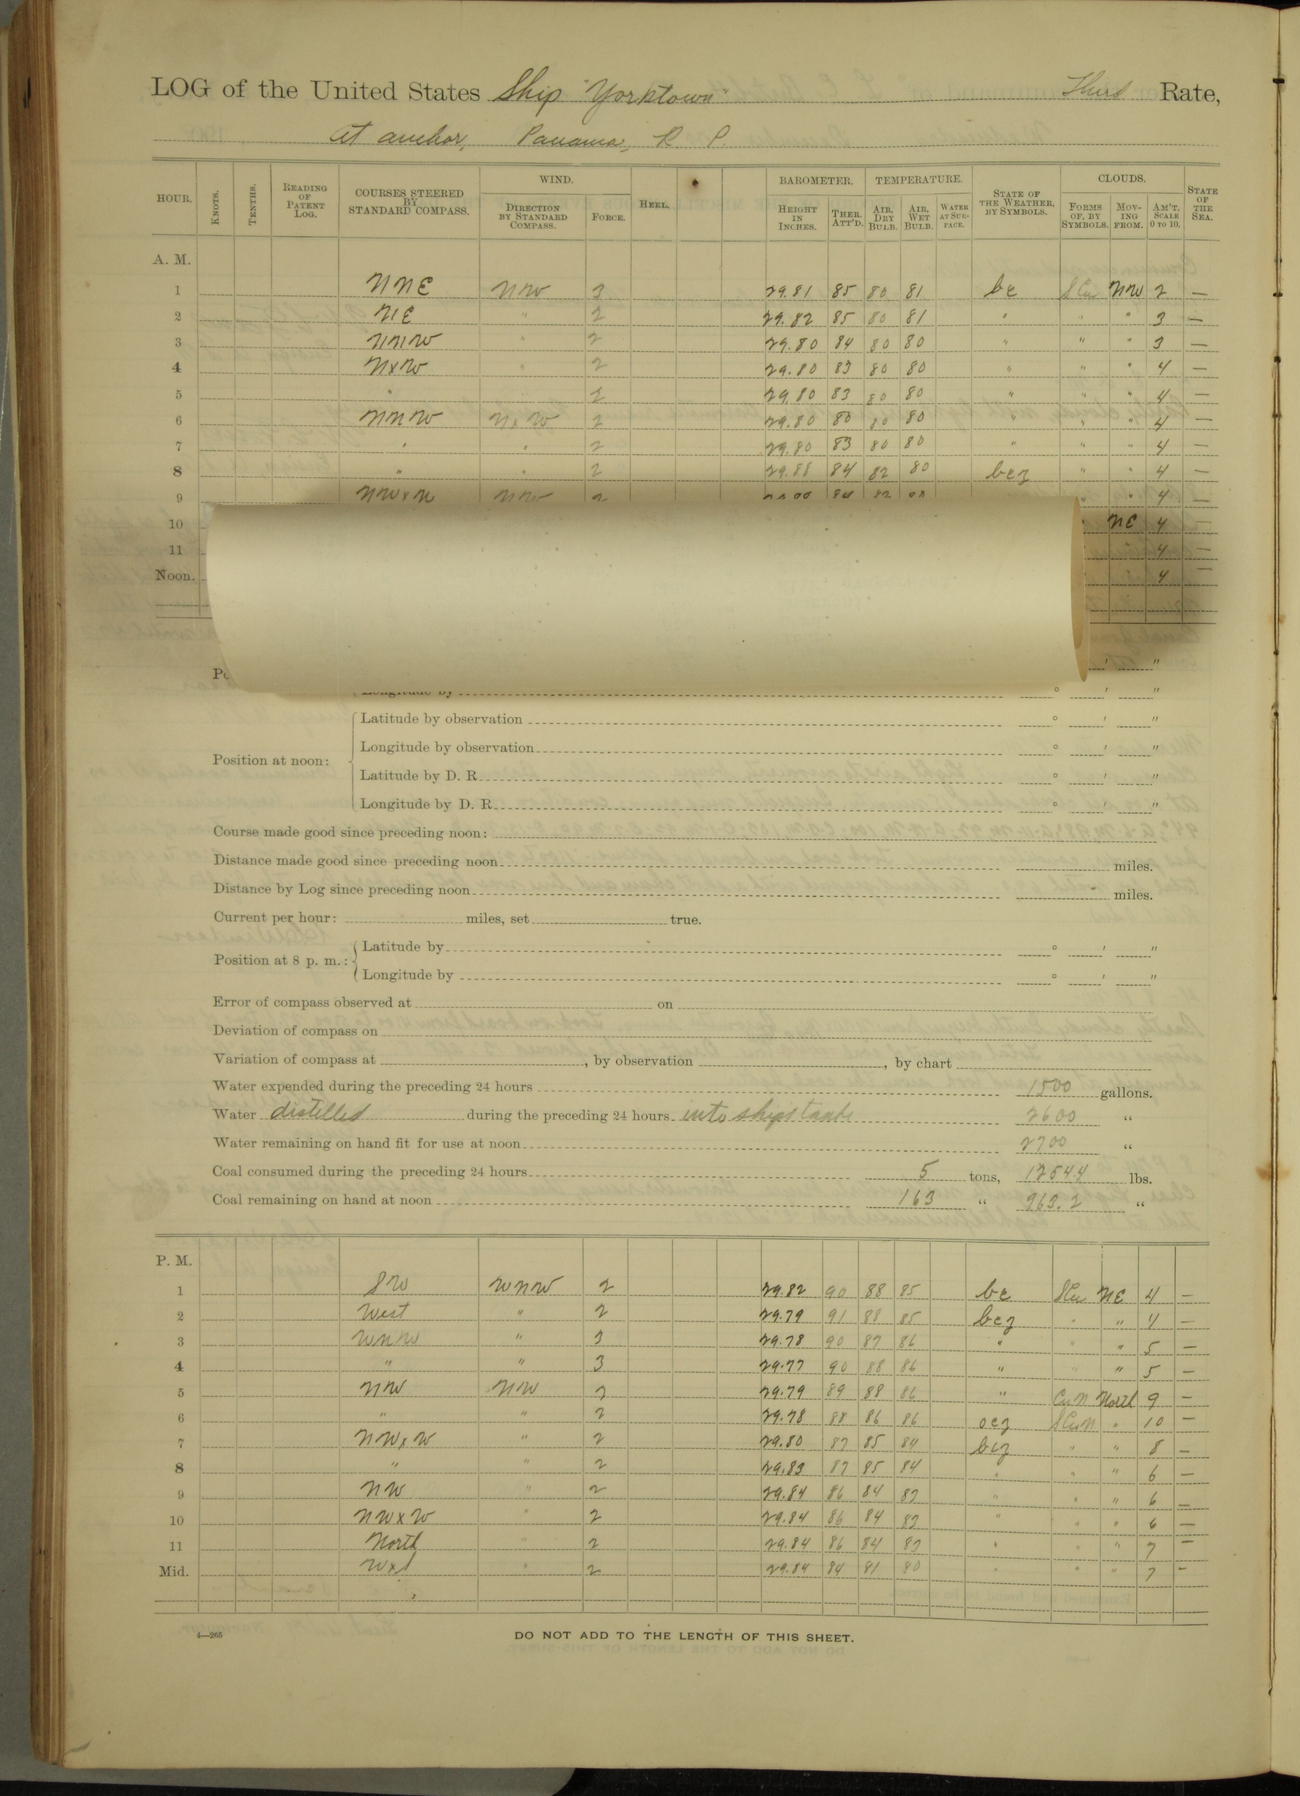 LOG of the United States Ship "Yorktown" Third Rate,
At anchor, Panama, R P.
HOUR. KNOTS. TENTHS. READING OF PATENT LOG. COURSES STEERED BY STANDARD COMPASS. WIND. DIRECTION BY STANDARD COMPASS. FORCE. HEEL. BAROMETER. HEIGHT IN INCHES. THER. ATT'D. TEMPERATURE. AIR, DRY BULB. AIR, WET BULB. WATER AT SURFACE. STATE OF THE WEATHER, BY SYMBOLS. CLOUDS. FORMS OF, BY SYMBOLS. MOVING FROM. AM'T, SCALE 0 TO 10. STATE OF THE SEA.
A. M.
1 NNE NW 3 29.81 85 80 81 bc SCu NW 2 —
2 NE " 2 29.82 85 80 81 " " " 3 —
3 NNW " 2 29.80 84 80 80 " " " 3 —
4 NxW " 2 29.80 83 80 80 " " " 4 —
5 " 2 29.80 83 80 80 " " " 4 —
6 NNW NxW 2 29.80 80 80 " " " 4 —
7 " " 2 29.80 83 80 80 " " " 4 —
8 " " 2 29.88 84 82 80 bcz " " 4 —
9 NWxN NW 2 " " 4 —
10 " NE 4 —
11 4 —
Noon. 4 —
° ' "
Longitude by ° ' "
Position at noon:
Latitude by observation ° ' "
Longitude by observation ° ' "
Latitude by D. R. ° ' "
Longitude by D. R. ° ' "
Course made good since preceding noon:
Distance made good since preceding noon miles.
Distance by Log since preceding noon miles.
Current per hour: miles, set true.
Position at 8 p. m.:
Latitude by ° ' "
Longitude by ° ' "
Error of compass observed at on
Deviation of compass on
Variation of compass at , by observation , by chart
Water expended during the preceding 24 hours 1500 gallons.
Water distilled during the preceding 24 hours into ships tanks 2600 "
Water remaining on hand fit for use at noon 2700 "
Coal consumed during the preceding 24 hours 5 tons, 12544 lbs.
Coal remaining on hand at noon 163 " 963.2 "
P. M.
1 SW WNW 2 29.82 90 88 85 bc SCu NE 4 —
2 West " 2 29.79 91 88 85 bcz " " 4 —
3 WNW " 3 29.78 90 87 86 " " " 5 —
4 " " 3 29.77 90 88 86 " " " 5 —
5 NW NW 2 29.79 89 88 86 " CuN North 9 —
6 " " 2 29.78 88 86 86 ocz SCuN " 10 —
7 NWxW " 2 29.80 87 85 84 bcz " " 8 —
8 " " 2 29.83 87 85 84 " " " 6 —
9 NW " 2 29.84 86 84 83 " " " 6 —
10 NWxW " 2 29.84 86 84 83 " " " 6 —
11 North " 2 29.84 86 84 83 " " " 7 —
Mid. WxS " 2 29.84 84 81 80 " " " 7 —
4—265
DO NOT ADD TO THE LENGTH OF THIS SHEET.